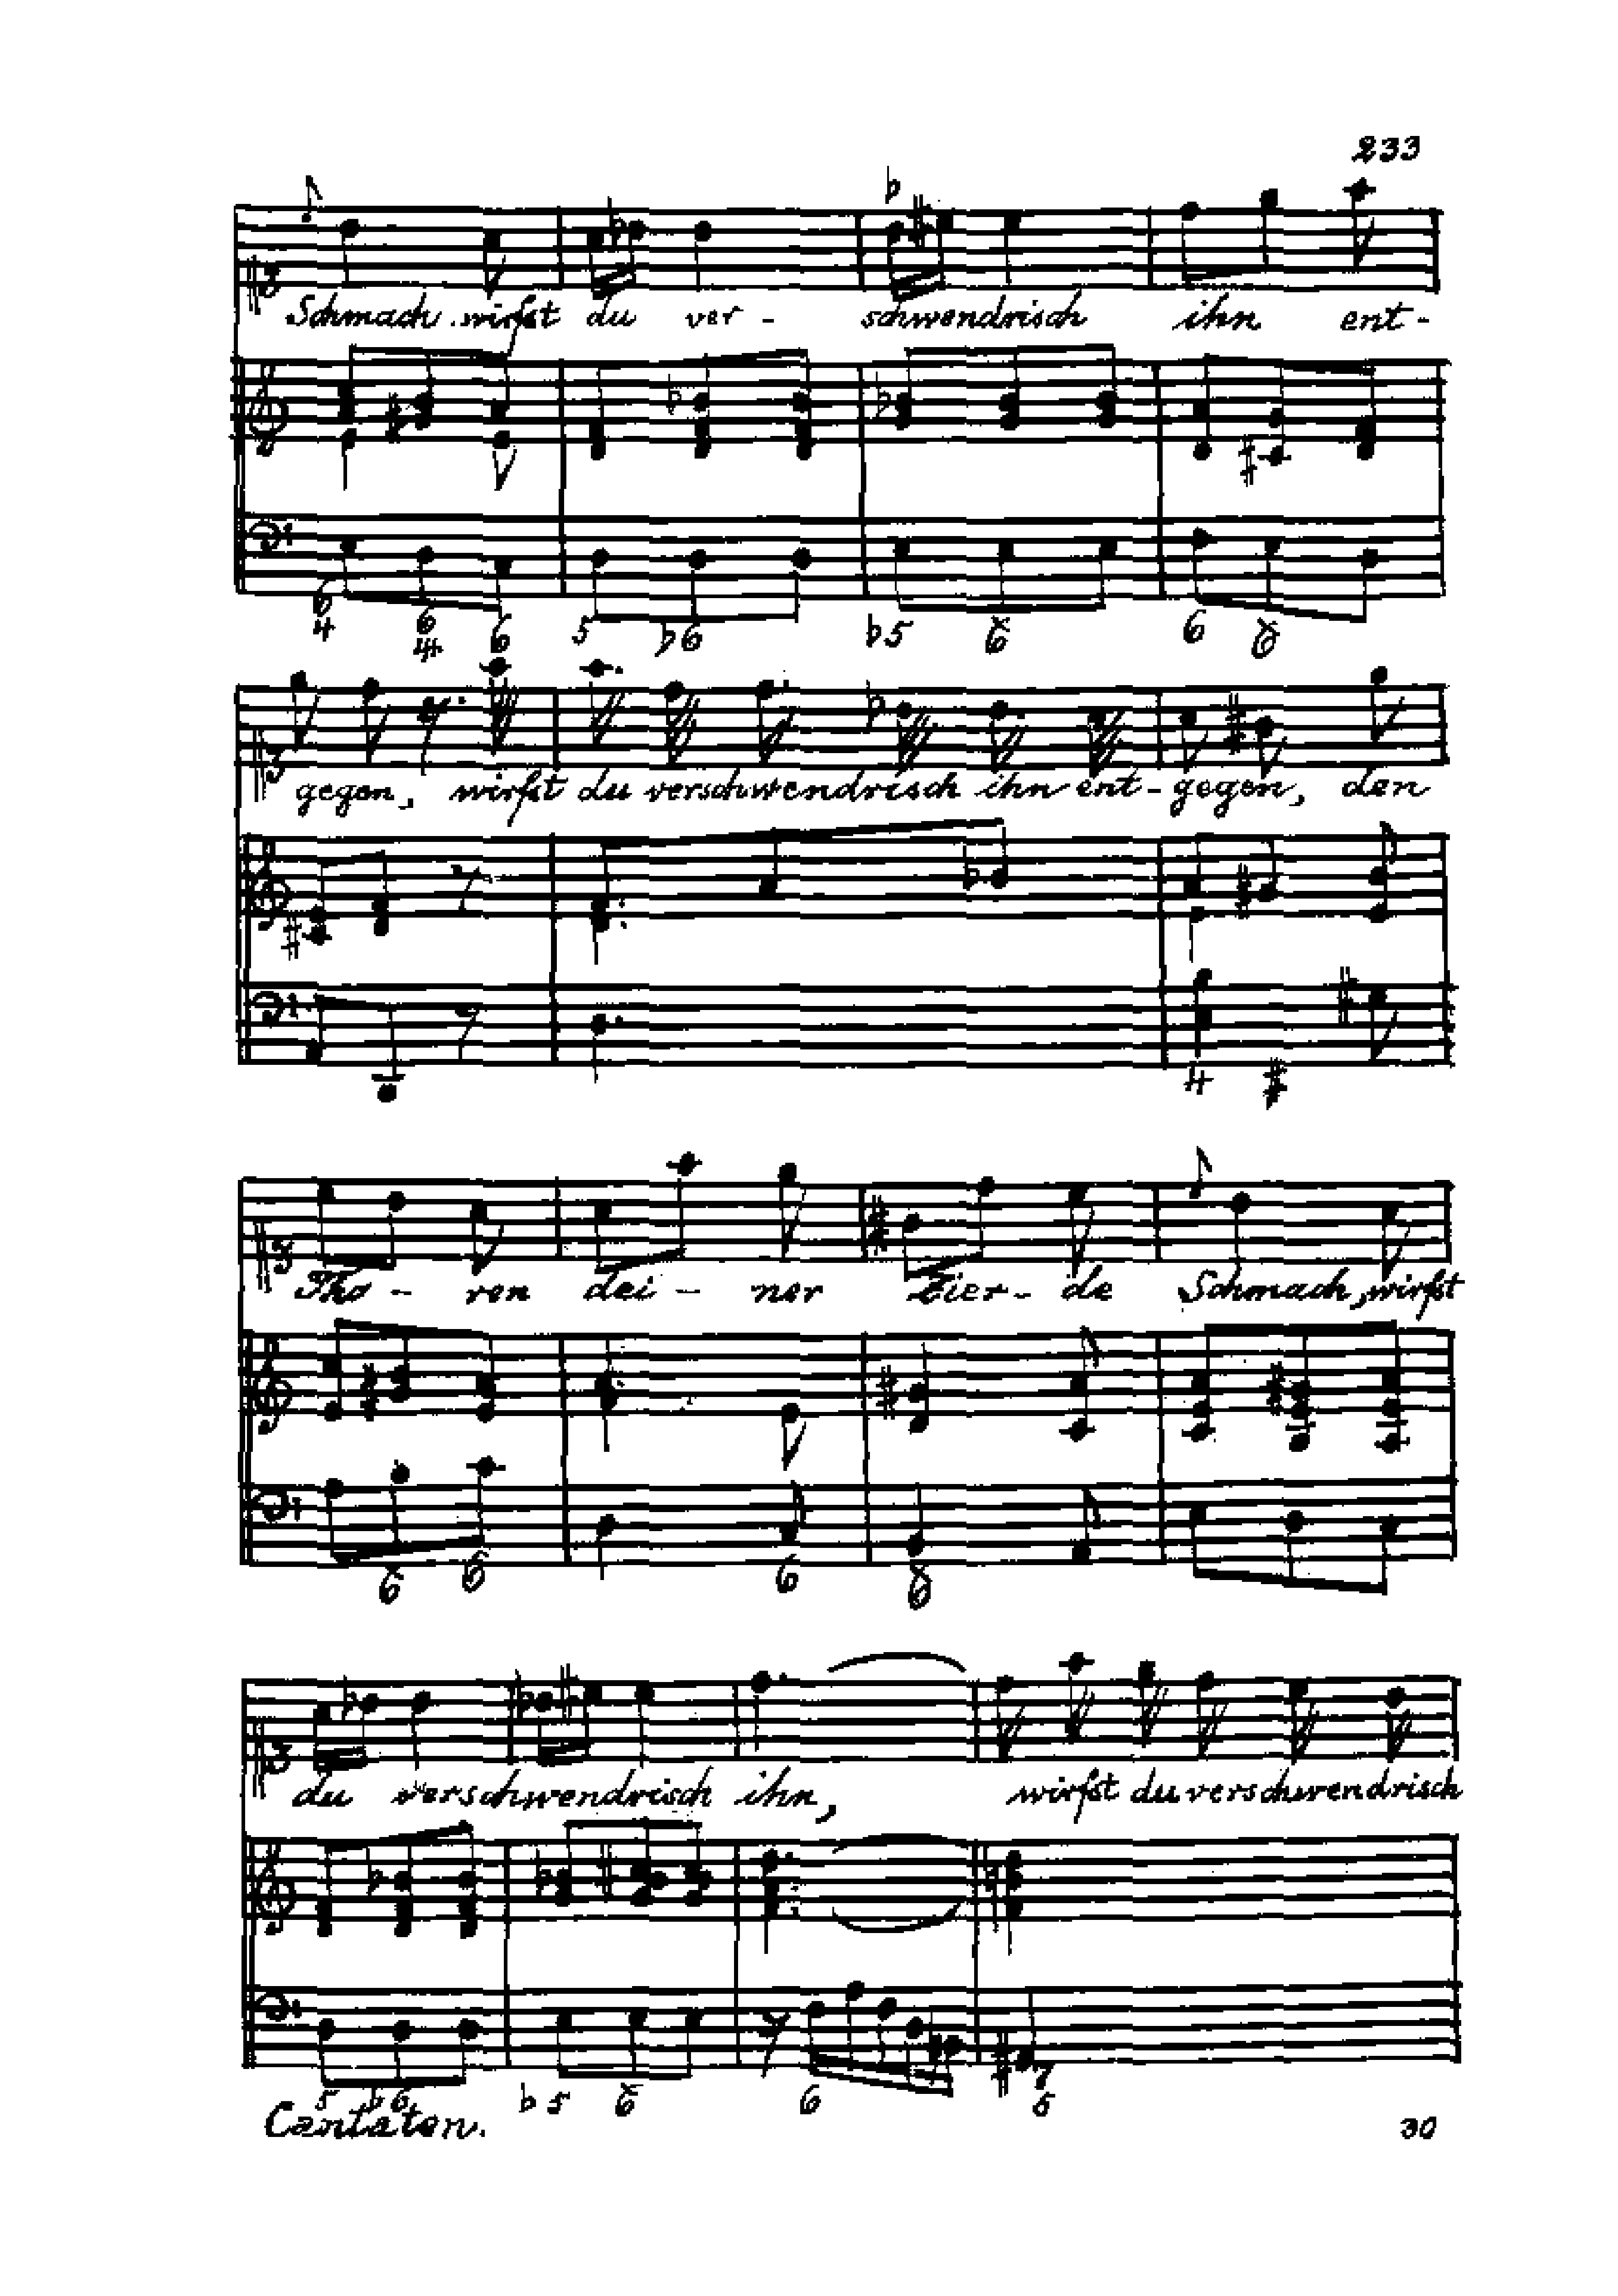 233
Schmach wirfst du ver - schwendrisch ihn ent -
6 4 6 4 6 5 ♭6 ♭5 6 6 6
gegen, wirfst du verschwendrisch ihn ent - gegen, den
4 #
Tho - ren dei - ner Zier - de Schmach, wirfst
6 6 6 6
du verschwendrisch ihn, wirfst du verschwendrisch
5 ♭6 ♭5 6 6 7 5
Cantaten.
30